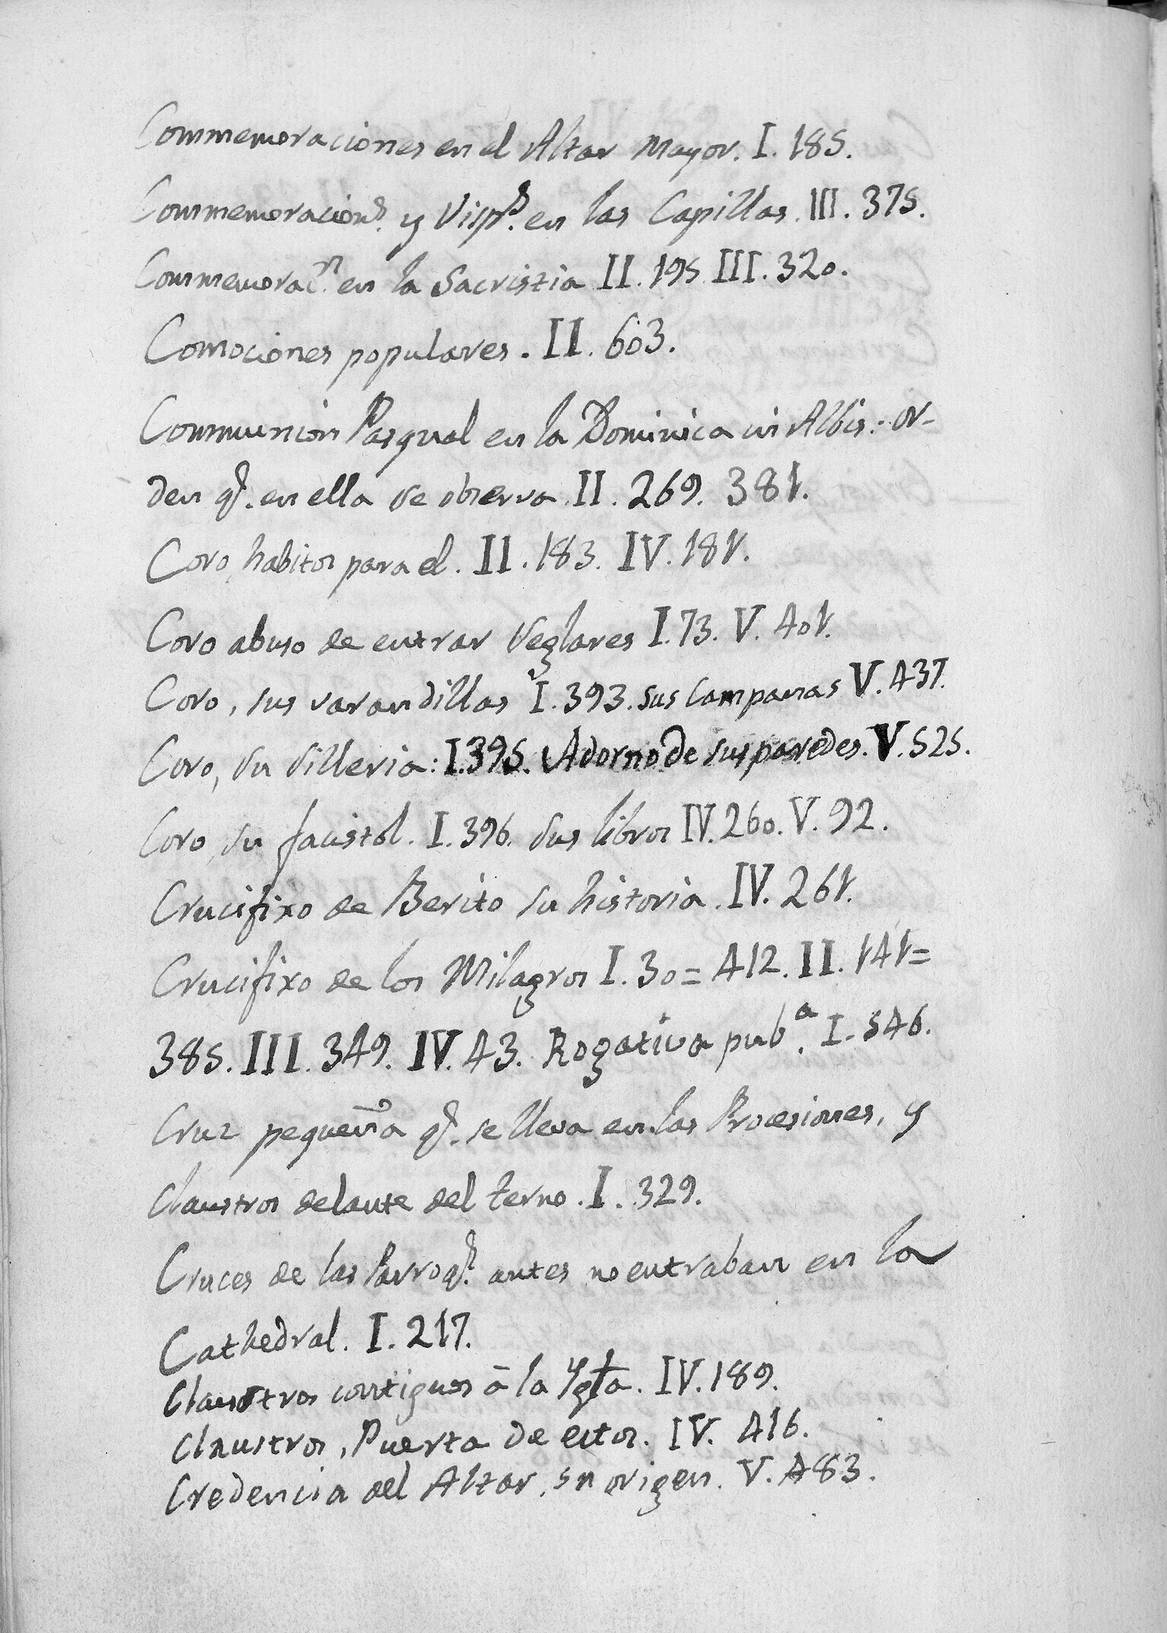 Commemoraciones en el Altar mayor. I. 185.
Commemoracion.s y Visp.s en las Capillas. III. 375.
Commemorac.n en la Sacristia II. 195. III. 320.
Comociones populares. II. 603.
Communion Pasqual en la Dominica in Albis: or-
den q.e en ella se observa. II. 269. 381.
Coro, habitos para el. II. 183. IV. 181.
Coro abuso de entrar Seglares I. 73. V. 401.
Coro, sus varandillas I. 393. sus Campanas V. 437.
Coro, su silleria: I. 395. Adorno de sus paredes. V. 525.
Coro, su facistol. I. 396. sus libros IV. 260. V. 92.
Crucifixo de Berito su historia. IV. 261.
Crucifixo de los Milagros I. 30 = 412. II. 141 =
385. III. 349. IV. 43. Rogativa pub.a I. 546.
Cruz pequeña q.e se lleva en las Procesiones, y
Claustros delante del terno. I. 329.
Cruces de las Parroq.s antes no entraban en la
Cathedral. I. 217.
Claustros contiguos à la Ygla. IV. 189.
Claustros, Puerta de estos. IV. 416.
Credencia del Altar, su origen. V. 483.